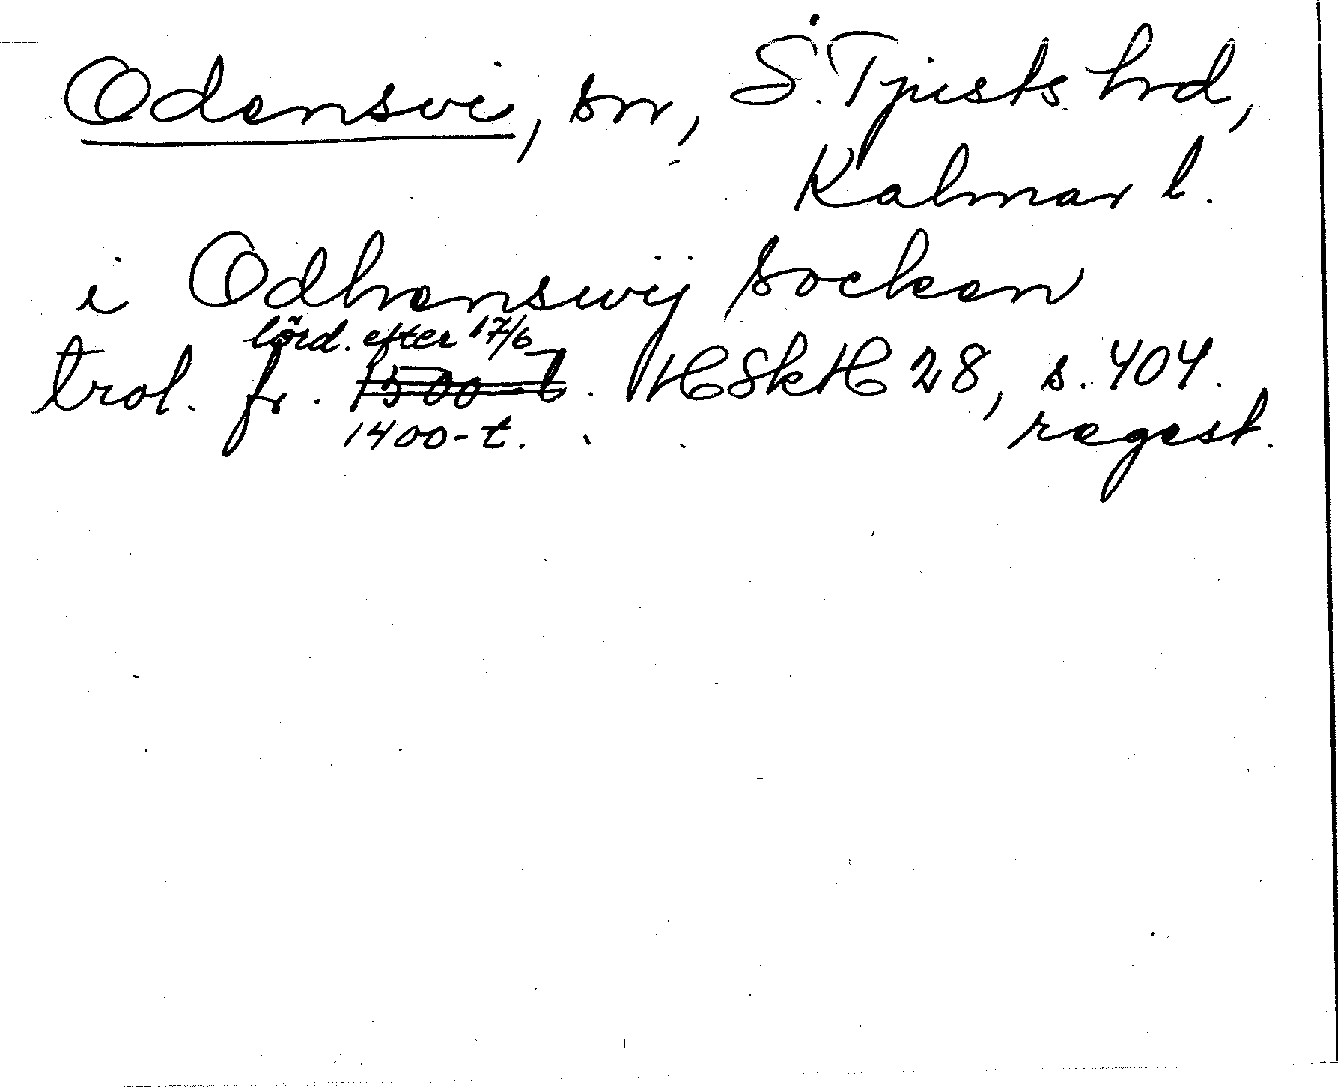 Odensvi, sn, S. Tjusts hrd,
Kalmar l.
i Odhenswij socken
lörd. efter 17/6
trol. fr. 1500-t. HSkH 28, s. 404.
1400-t. regest.